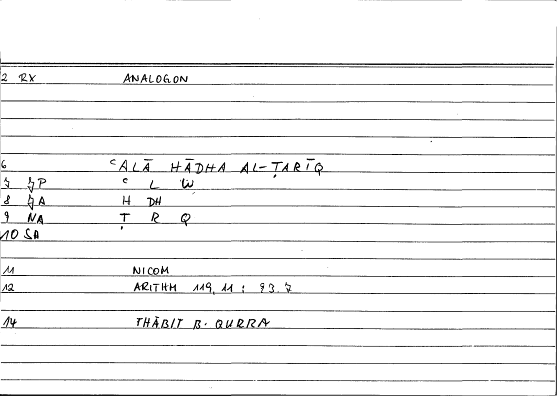 2 RX ANALOGON
6 ʿALĀ HĀDHA AL-ṬARĪQ
ʿ L W
8 H DH
9 NA Ṭ R Q
10 SA
11 NICOM
12 ARITHM 119, 11 : 93.7
14 THĀBIT B. QURRA